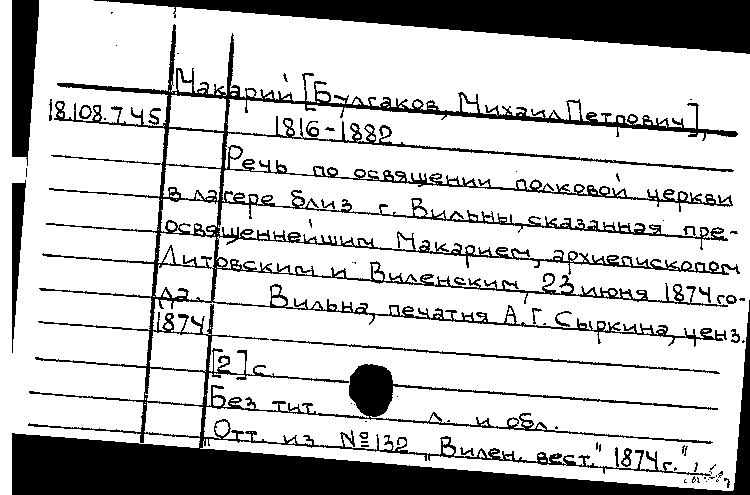 Макарий [Булгаков, Михаил Петрович],
18.108.7.45
1816-1882.
Речь по освящении полковой церкви
в лагере близ г. Вильны, сказанная пре-
освященнейшим Макарием, архиепископом
Литовским и Виленским, 23 июня 1874 го-
да. Вильна, печатня А.Г. Сыркина, ценз.
1874.
[2] с.
Без тит. л. и обл.
"Отт. из №132 "Вилен. вест.", 1874г."